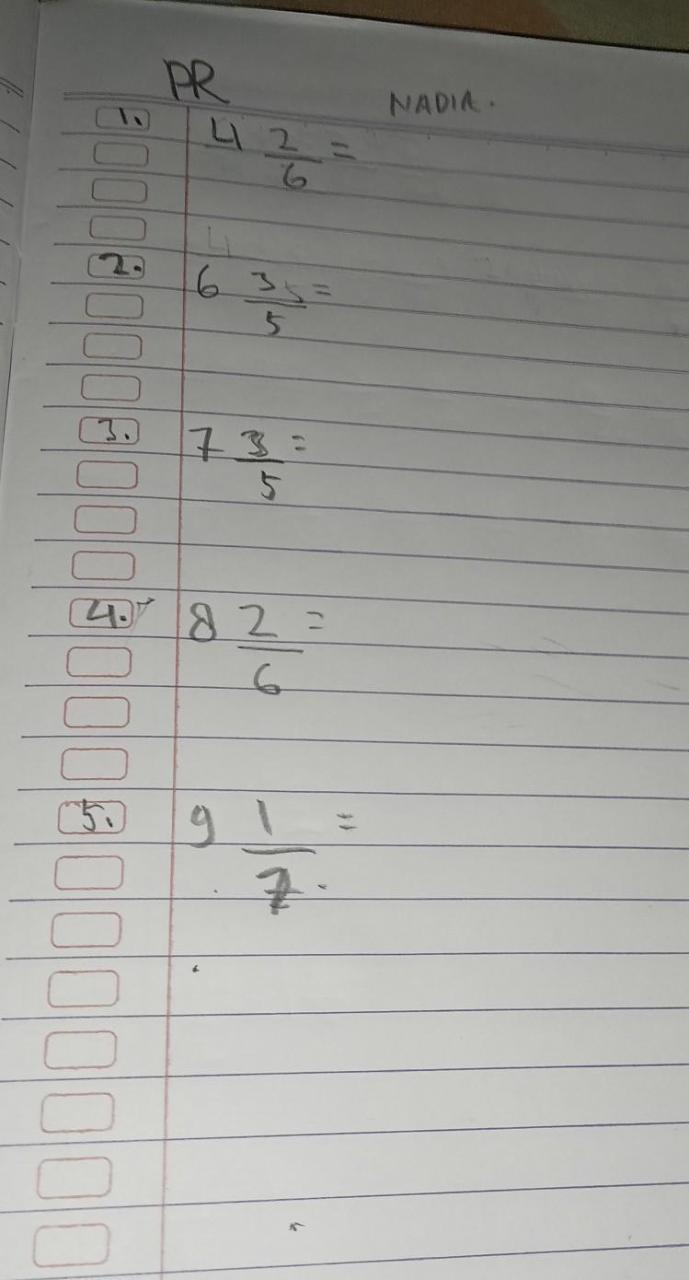 PR
NADIA.
1. 4 2/6 =
2. 6 3/5 =
3. 7 3/5 =
4. 8 2/6 =
5. 9 1/7 =